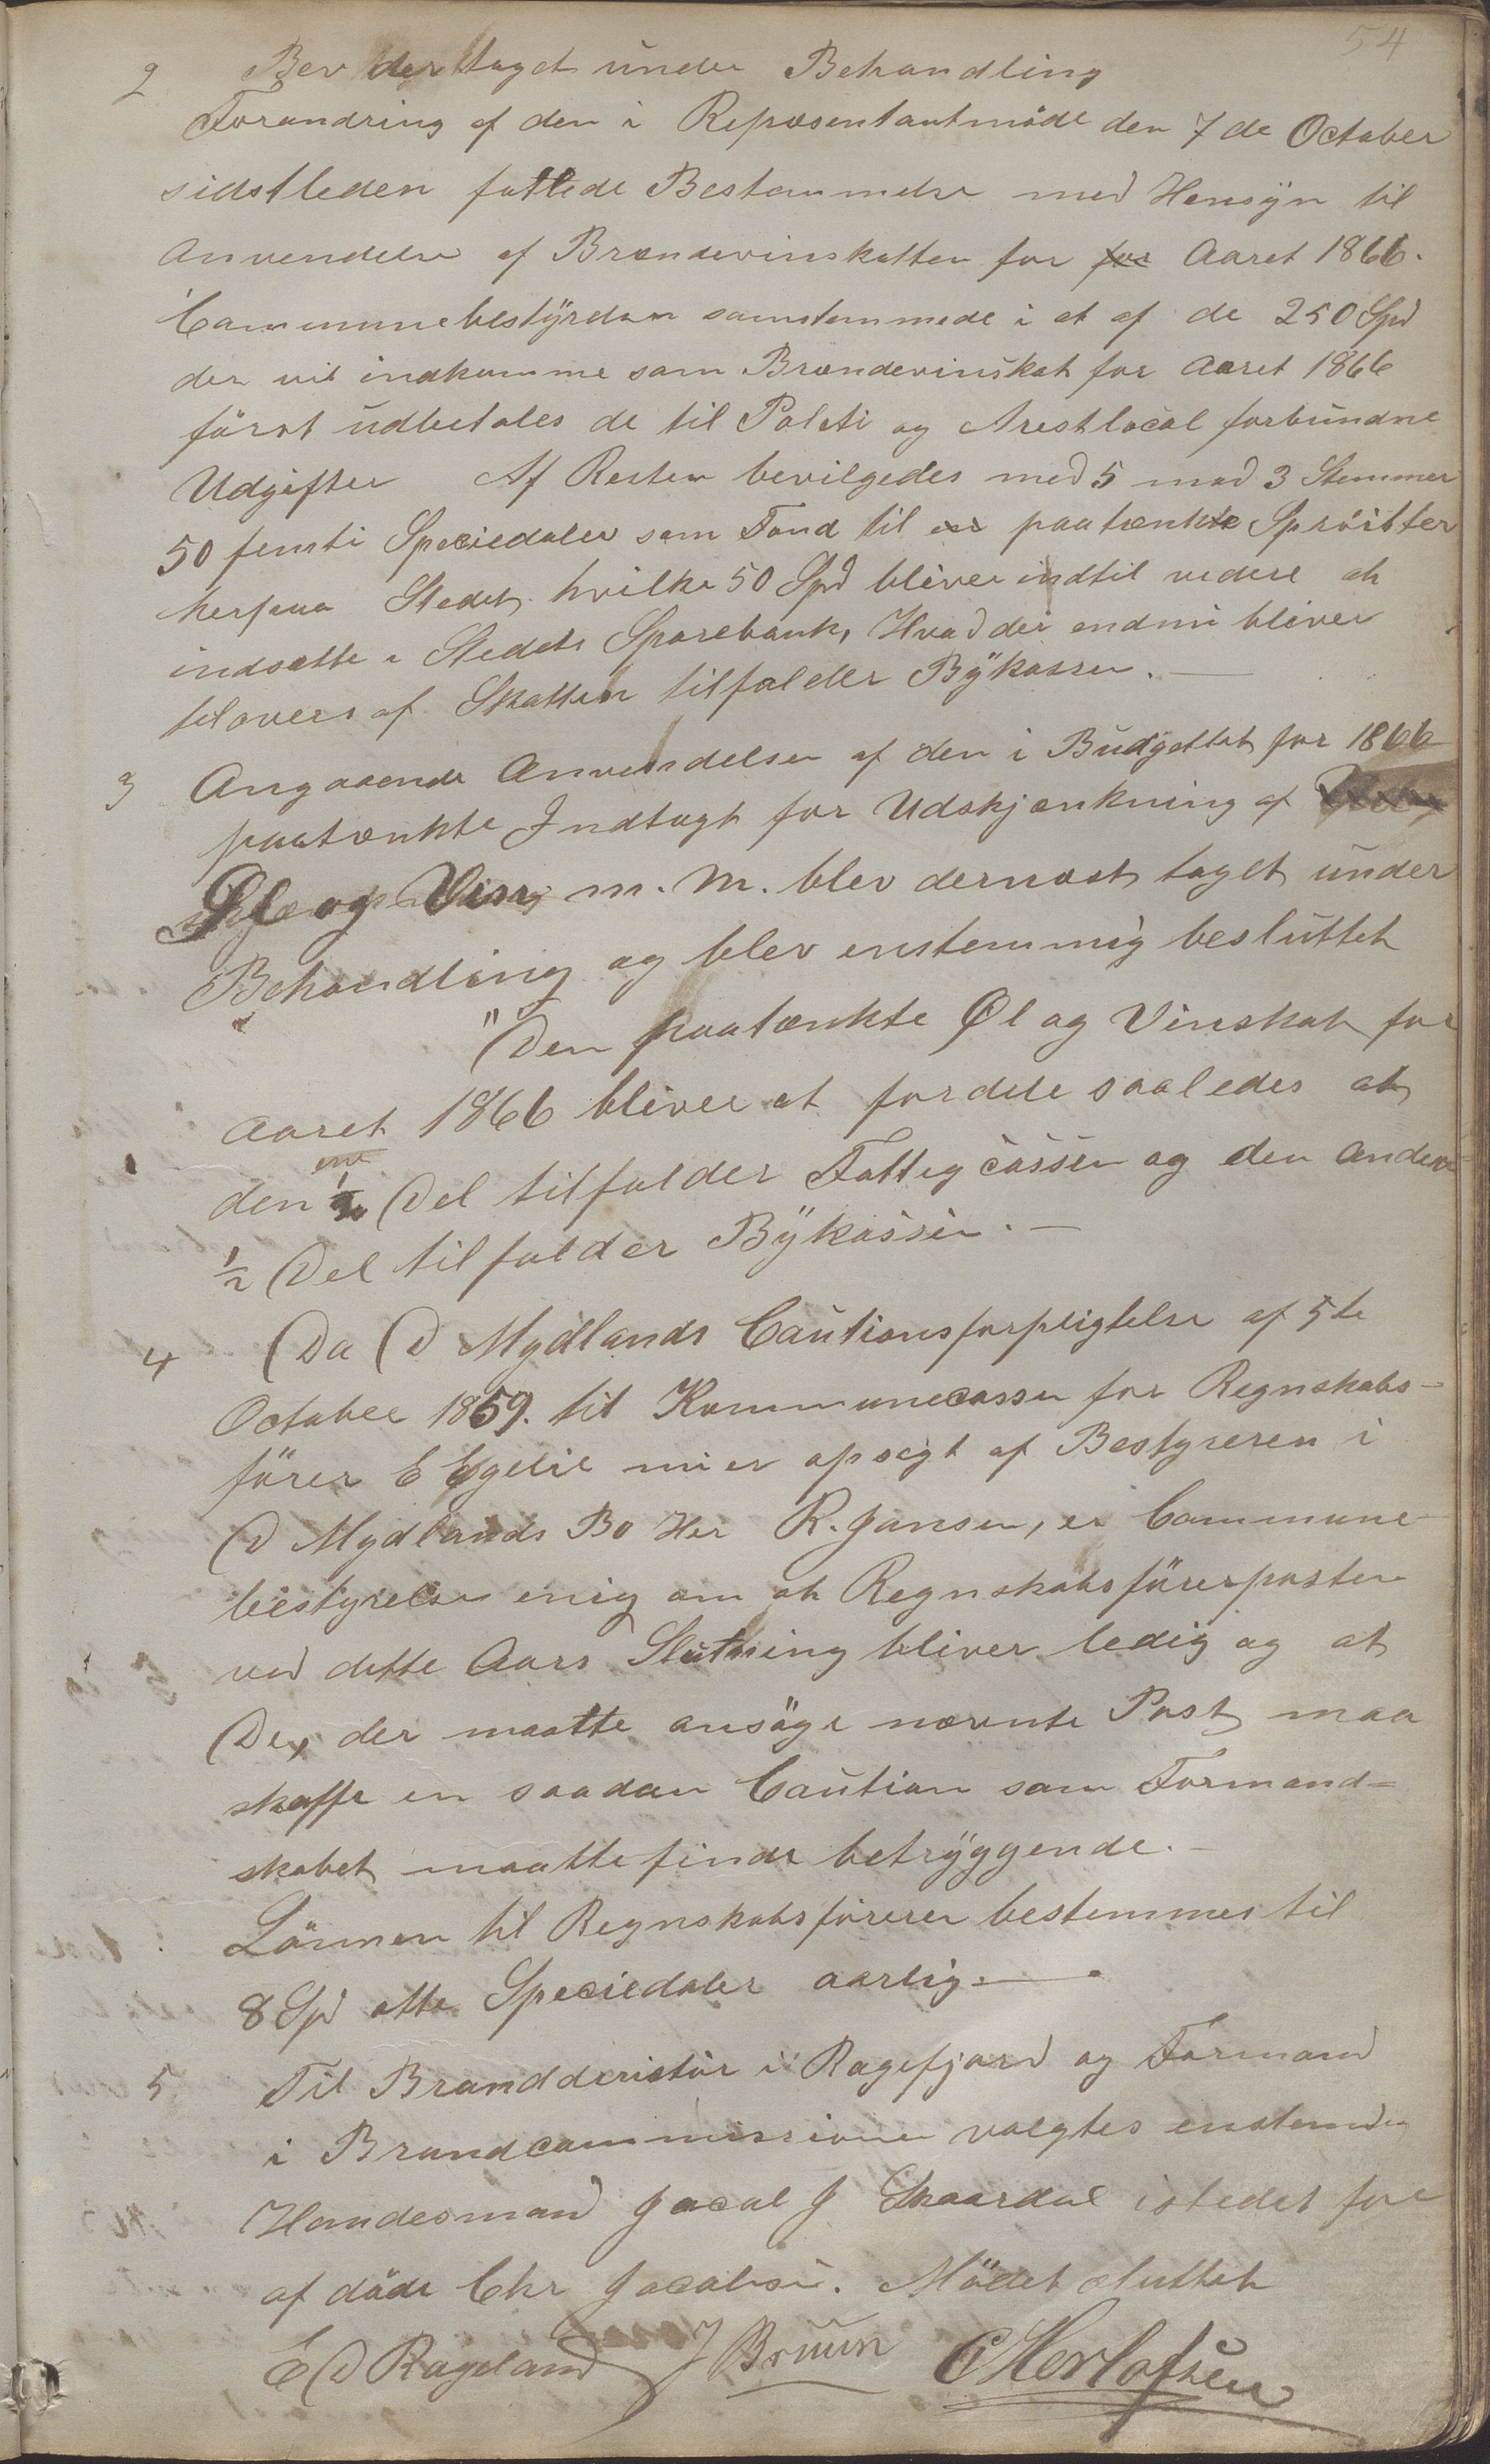 54
2 Blev der taget under Behandling
Forandring af den i Repræsentantmöde den 7de October
sidstleden fattede Bestemmelse med Hensÿn til
Anvendelse af Brændevinskatten for for Aaret 1866.
Communebestÿrelsen samstemmede i at af de 250 Spd
der vil indkomme som Brændevinskat for Aaret 1866
först udbetales de til Politi og Arestlocal forbundne
Udgifter Af Resten bevilgedes med 5 mod 3 Stemmer
50 femti Speciedaler som Fond til paatænkte Spröiter
herpaa Stedet hvilke 50 Spd bliver indtil videre at
indsætte i Stedets Sparebank, Hvad der endnu bliver
tilovers af Skatten tilfalder Bÿkassen.—
3 Angaaende Anvendelsen af den i Budgettet for 1866
paatænkte Indtægt for Udskjænkning af
Øl og Vin m. m. blev dernæst taget under
Behandling og blev enstemmig besluttet
"Den paatænkte Øl og Vinskat for
Aaret 1866 bliver at fordele saaledes at
den ene 1/2 Del tilfalder Fattigcassen og den anden
1/2 Del tilfalder Bÿkassen.—
4 Da D Mydlands Cautionsforpligtelse af 5te
October 1859. til Kommunecassen for Regnskabs-
förer E Egelie nu er opsagt af Bestyreren i
D Mydlands Bo Her R. Jansen, er Commune-
bestyrelsen enig om at Regnskabsförerposten
ved dette Aars Slutning bliver ledig og at
De, der maatte ansöge nævnte Post maa
skaffe en saadan Caution som Formand=
skabet maatte finde betrÿggende.—
Lönnen til Regnskabsföreren bestemmes til
8 Spd otte Speciedaler aarlig.—
5 Til Branddirectör i Ragefjord og Formand
i Brandcommissionen valgtes enstemmig
Handesmand Jacob J Skaardal istedet for
afdöde Chr Jacobsen. Mödet sluttet
E D Rageland J Bruun C Herlofsen